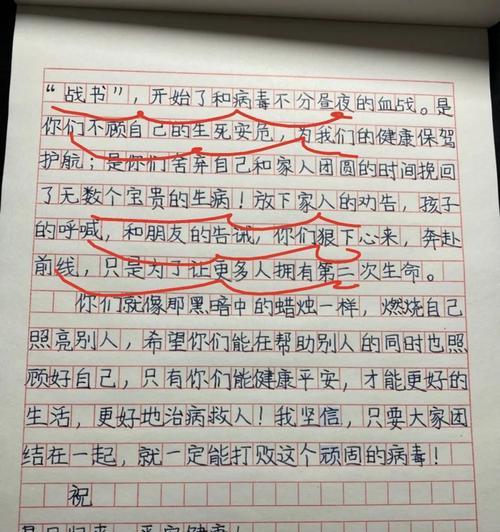 “战书”，开始了和病毒不分昼夜的血战。是
你们不顾自己的生死安危，为我们的健康保驾
护航；是你们舍弃自己和家人团圆的时间挽回
了无数个宝贵的生病！放下家人的劝告，孩子
的呼喊，和朋友的告诫，你们狠下心来，奔赴
前线，只是为了让更多人拥有第二次生命。
你们就像那黑暗中的蜡烛一样，燃烧自己
照亮别人，希望你们能在帮助别人的同时也照
顾好自己，只有你们能健康平安，才能更好的
生活，更好地治病救人！我坚信，只要大家团
结在一起，就一定能打败这个顽固的病毒！
祝
早日归来，平安健康！